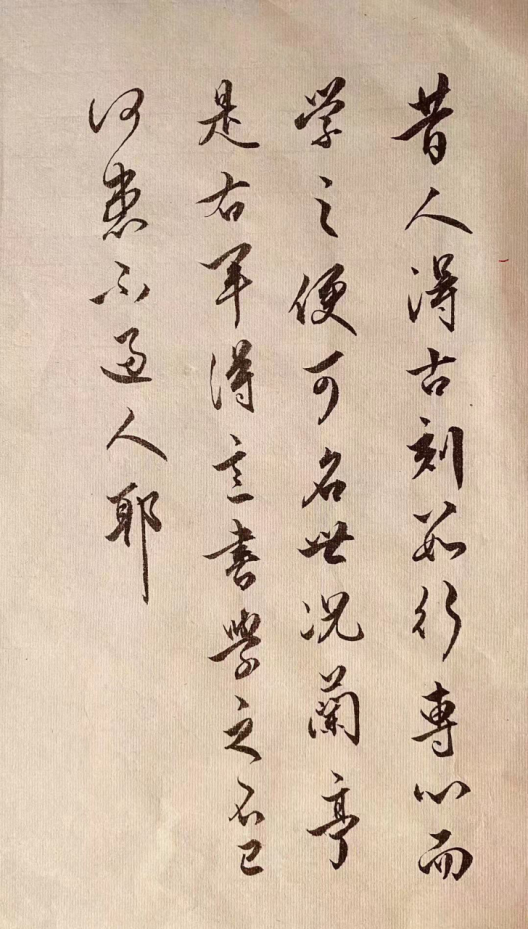 昔人得古刻数行专心而
学之便可名世况兰亭
是右军得意书学之不已
何患不过人耶